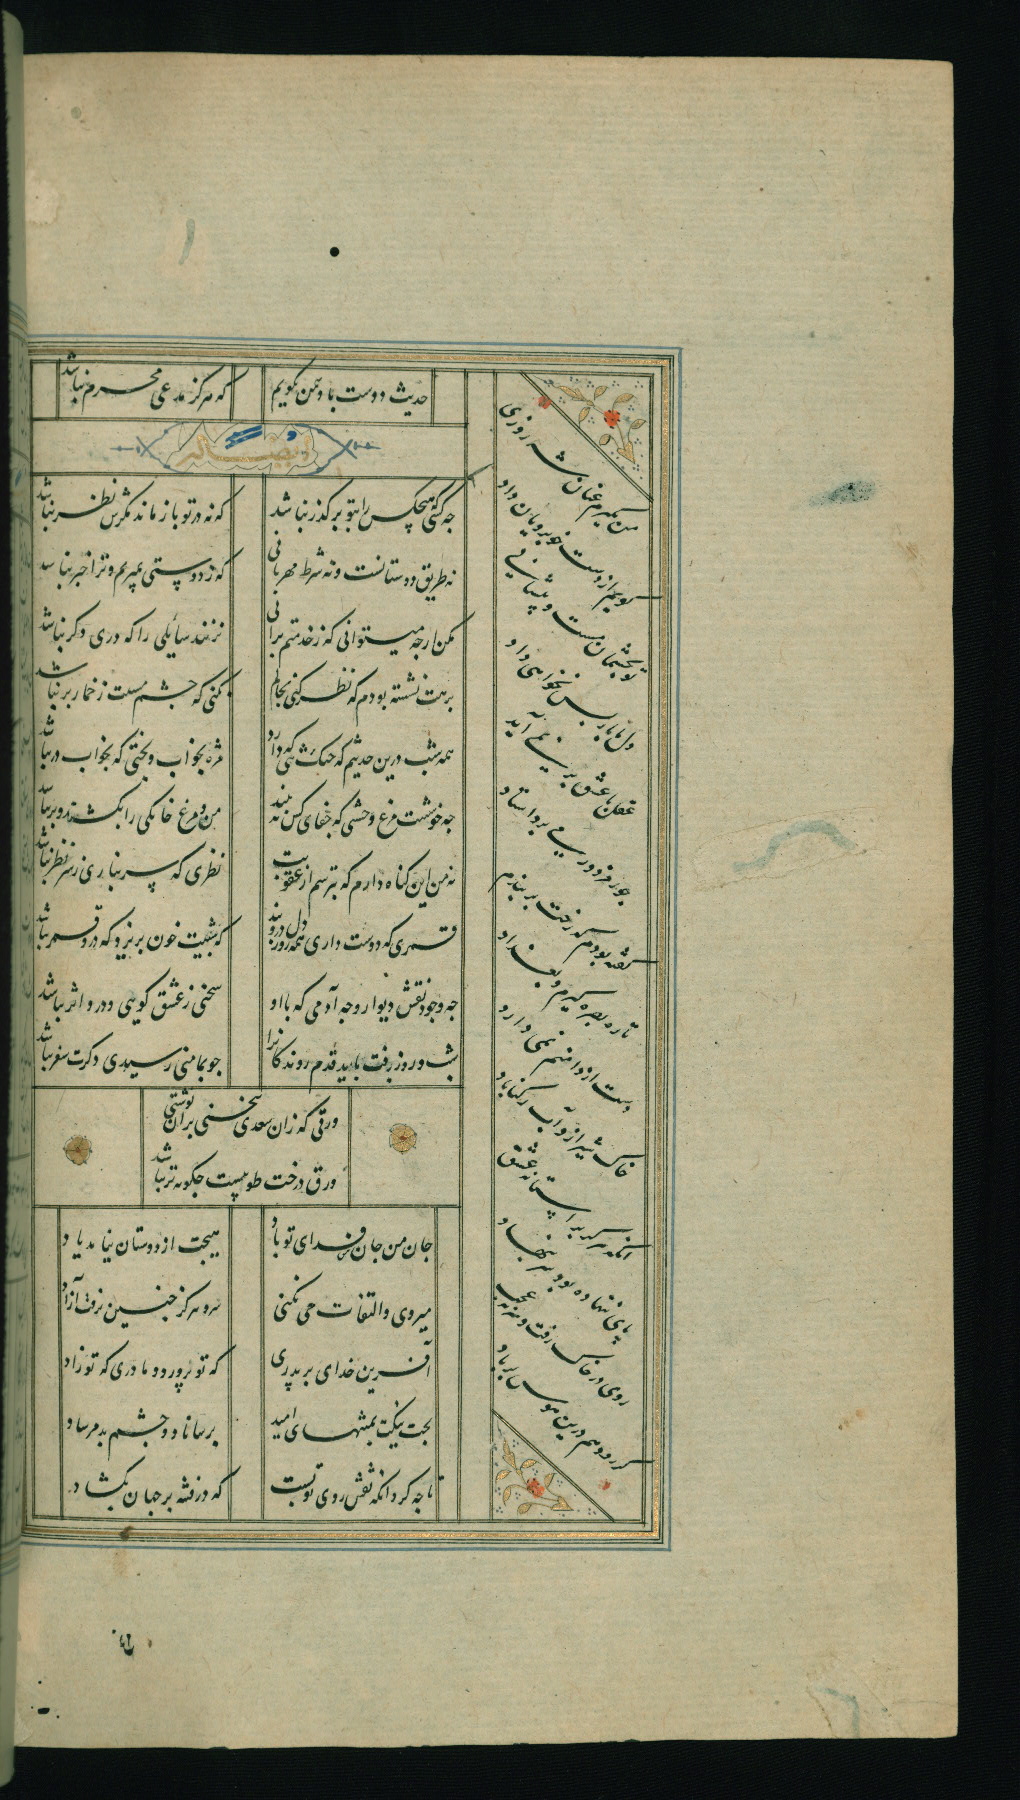 حدیث دوست با دشمن نگویم که هرگز مدعی محرم نباشد
و نصیبا له
چه کسی که هیچکس را بتو بر گذر نباشد که نه در تو باز ماند مگرش نظر نباشد
نه طریق دوستانست و نه شرط مهربانی که ز دوستی بمیریم و ترا خبر نباشد
مکن ارچه میتوانی که ز خدمتم برانی نزنند سایلی را که دری دکر نباشد
برهت نشسته بودم که نظر کنی بحالم نکنی که چشم مستت ز خمار بر نباشد
همه شب درین حدیثم که خنک تنی که دارد مژه بخواب و بختی که بخواب در نباشد
چه خوشست مرغ وحشی که جفای کس نه بیند من و مرغ خانکی را بکشند و پر نباشد
نه من این کناه دارم که بترسم از عقوبت نظری که سر نبازی ز سر نظر نباشد
قمری که دوست داری همه روز دل درو بند که شبیت خون بریزد که درو قمر نباشد
چه وجود نقش دیوار و چه آدمی که با او سخنی ز عشق کویی و درو اثر نباشد
شب و روز رفت باید قدم روندکانرا چو بمامنی رسیدی دکرت سفر نباشد
ورقی که زان سعدی سخنی بران نوشتی
ورق درخت طوبیست چکونه تر نباشد
جان من جان من فدای تو باد هیچت از دوستان نیاید یاد
میروی و التفات می نکنی سرو هرکز چنین نرفت آزاد
آفرین خدای بر پدری که تو پرورد و مادری که تو زاد
بخت نیکت بمنتهای امید برساناد و چشم بد مرساد
تا چه کرد آنکه نقش روی تو بست که در فتنه بر جهان بکشاد
من بگیرم عنان شه روزی
گویم از دست خوبرویان داد
تو بدین چشم مست و پیشانی
دل ما باز پس نخواهی داد
عقل با عشق بر نمی آید
جور مزدور می برد استاد
گفته بودم که رخت بر بندم
تا ره بصره گیرم و بغداد
دست از دامنم نمی دارد
خاک شیراز و آب رکناباد
آنکه هرگز بر آستانه عشق
پای ننهاده بود سر بنهاد
روی در خاک رفت و سر نه عجب
گر رود هم درین هوس بر باد